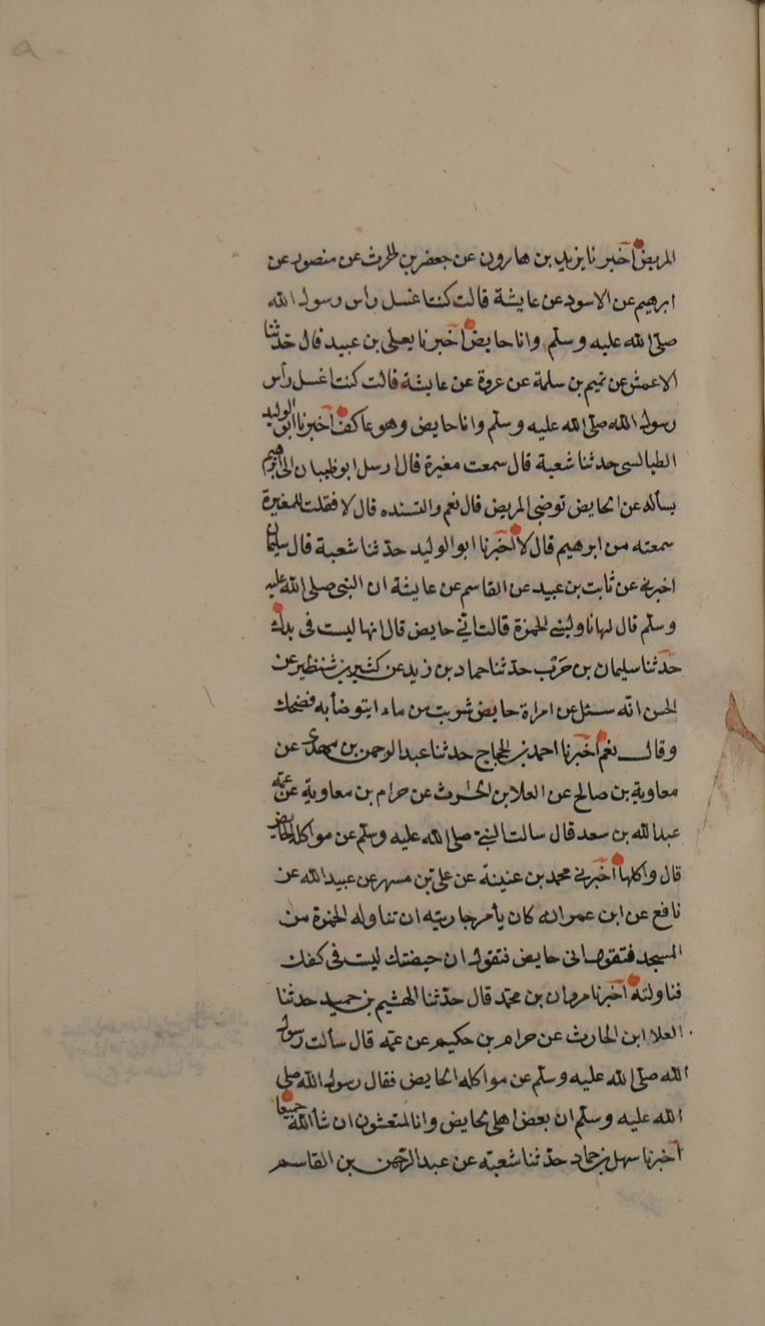 المريض أخبرنا يزيد بن هارون عن جعفر بن الحرث عن منصور عن
ابرهيم عن الاسود عن عايشة قالت كنت اغسل راس رسول الله
صلى الله عليه وسلم وانا حايض أخبرنا يعلى بن عبيد قال حدثنا
الاعمش عن تميم بن سلمة عن عروة عن عايشة قالت كنت اغسل رأس
رسول الله صلى الله عليه وسلم وانا حايض وهو عاكف أخبرنا ابو الوليد
الطيالسى حدثنا شعبة قال سمعت مغيرة قال ارسل ابو ظبيان الى ابرهيم
يسأله عن الحايض توضى المريض قال نعم والتسنده قال لا فقلت للمغيرة
سمعته من ابرهيم قال لا أخبرنا ابو الوليد حدثنا شعبة قال سليمان
اخبرني عن ثابت بن عبيد عن القاسم عن عايشة ان النبى صلى الله عليه
وسلم قال لها ناوليني الخمرة قالت اني حايض قال انها ليست فى يدك
حدثنا سليمان بن حرب حدثنا حماد بن زيد عن كثير بن شنظير عن
الحسن انه سئل عن امراة حايض شربت من ماء ايتوضأ به فضحك
وقال نعم أخبرنا احمد بن الحجاج حدثنا عبد الرحمن بن مهدى عن
معاوية بن صالح عن العلا بن الحرث عن حرام بن معاوية عن عمه
عبد الله بن سعد قال سالت النبي صلى الله عليه وسلم عن مواكلة الحايض
قال واكلها أخبرني محمد بن عنينة عن على بن مسهر عن عبيد الله عن
نافع عن ابن عمر انه كان يأمر جاريته ان تناوله الخمرة من
المسجد فتقول انى حايض فتقول ان حيضتك ليست فى كفك
فناولته أخبرنا مروان بن محمد قال حدثنا الهشيم بن حميد حدثنا
العلا ابن الحارث عن حرام بن حكيم عن عمه قال سألت رسول
الله صلى الله عليه وسلم عن مواكلة الحايض فقال رسول الله صلى
الله عليه وسلم ان بعض اهلى لحايض وانا لمتعشون ان شأ الله جميعا
أخبرنا سهل بن حماد حدثنا شعبة عن عبد الرحمن بن القاسم